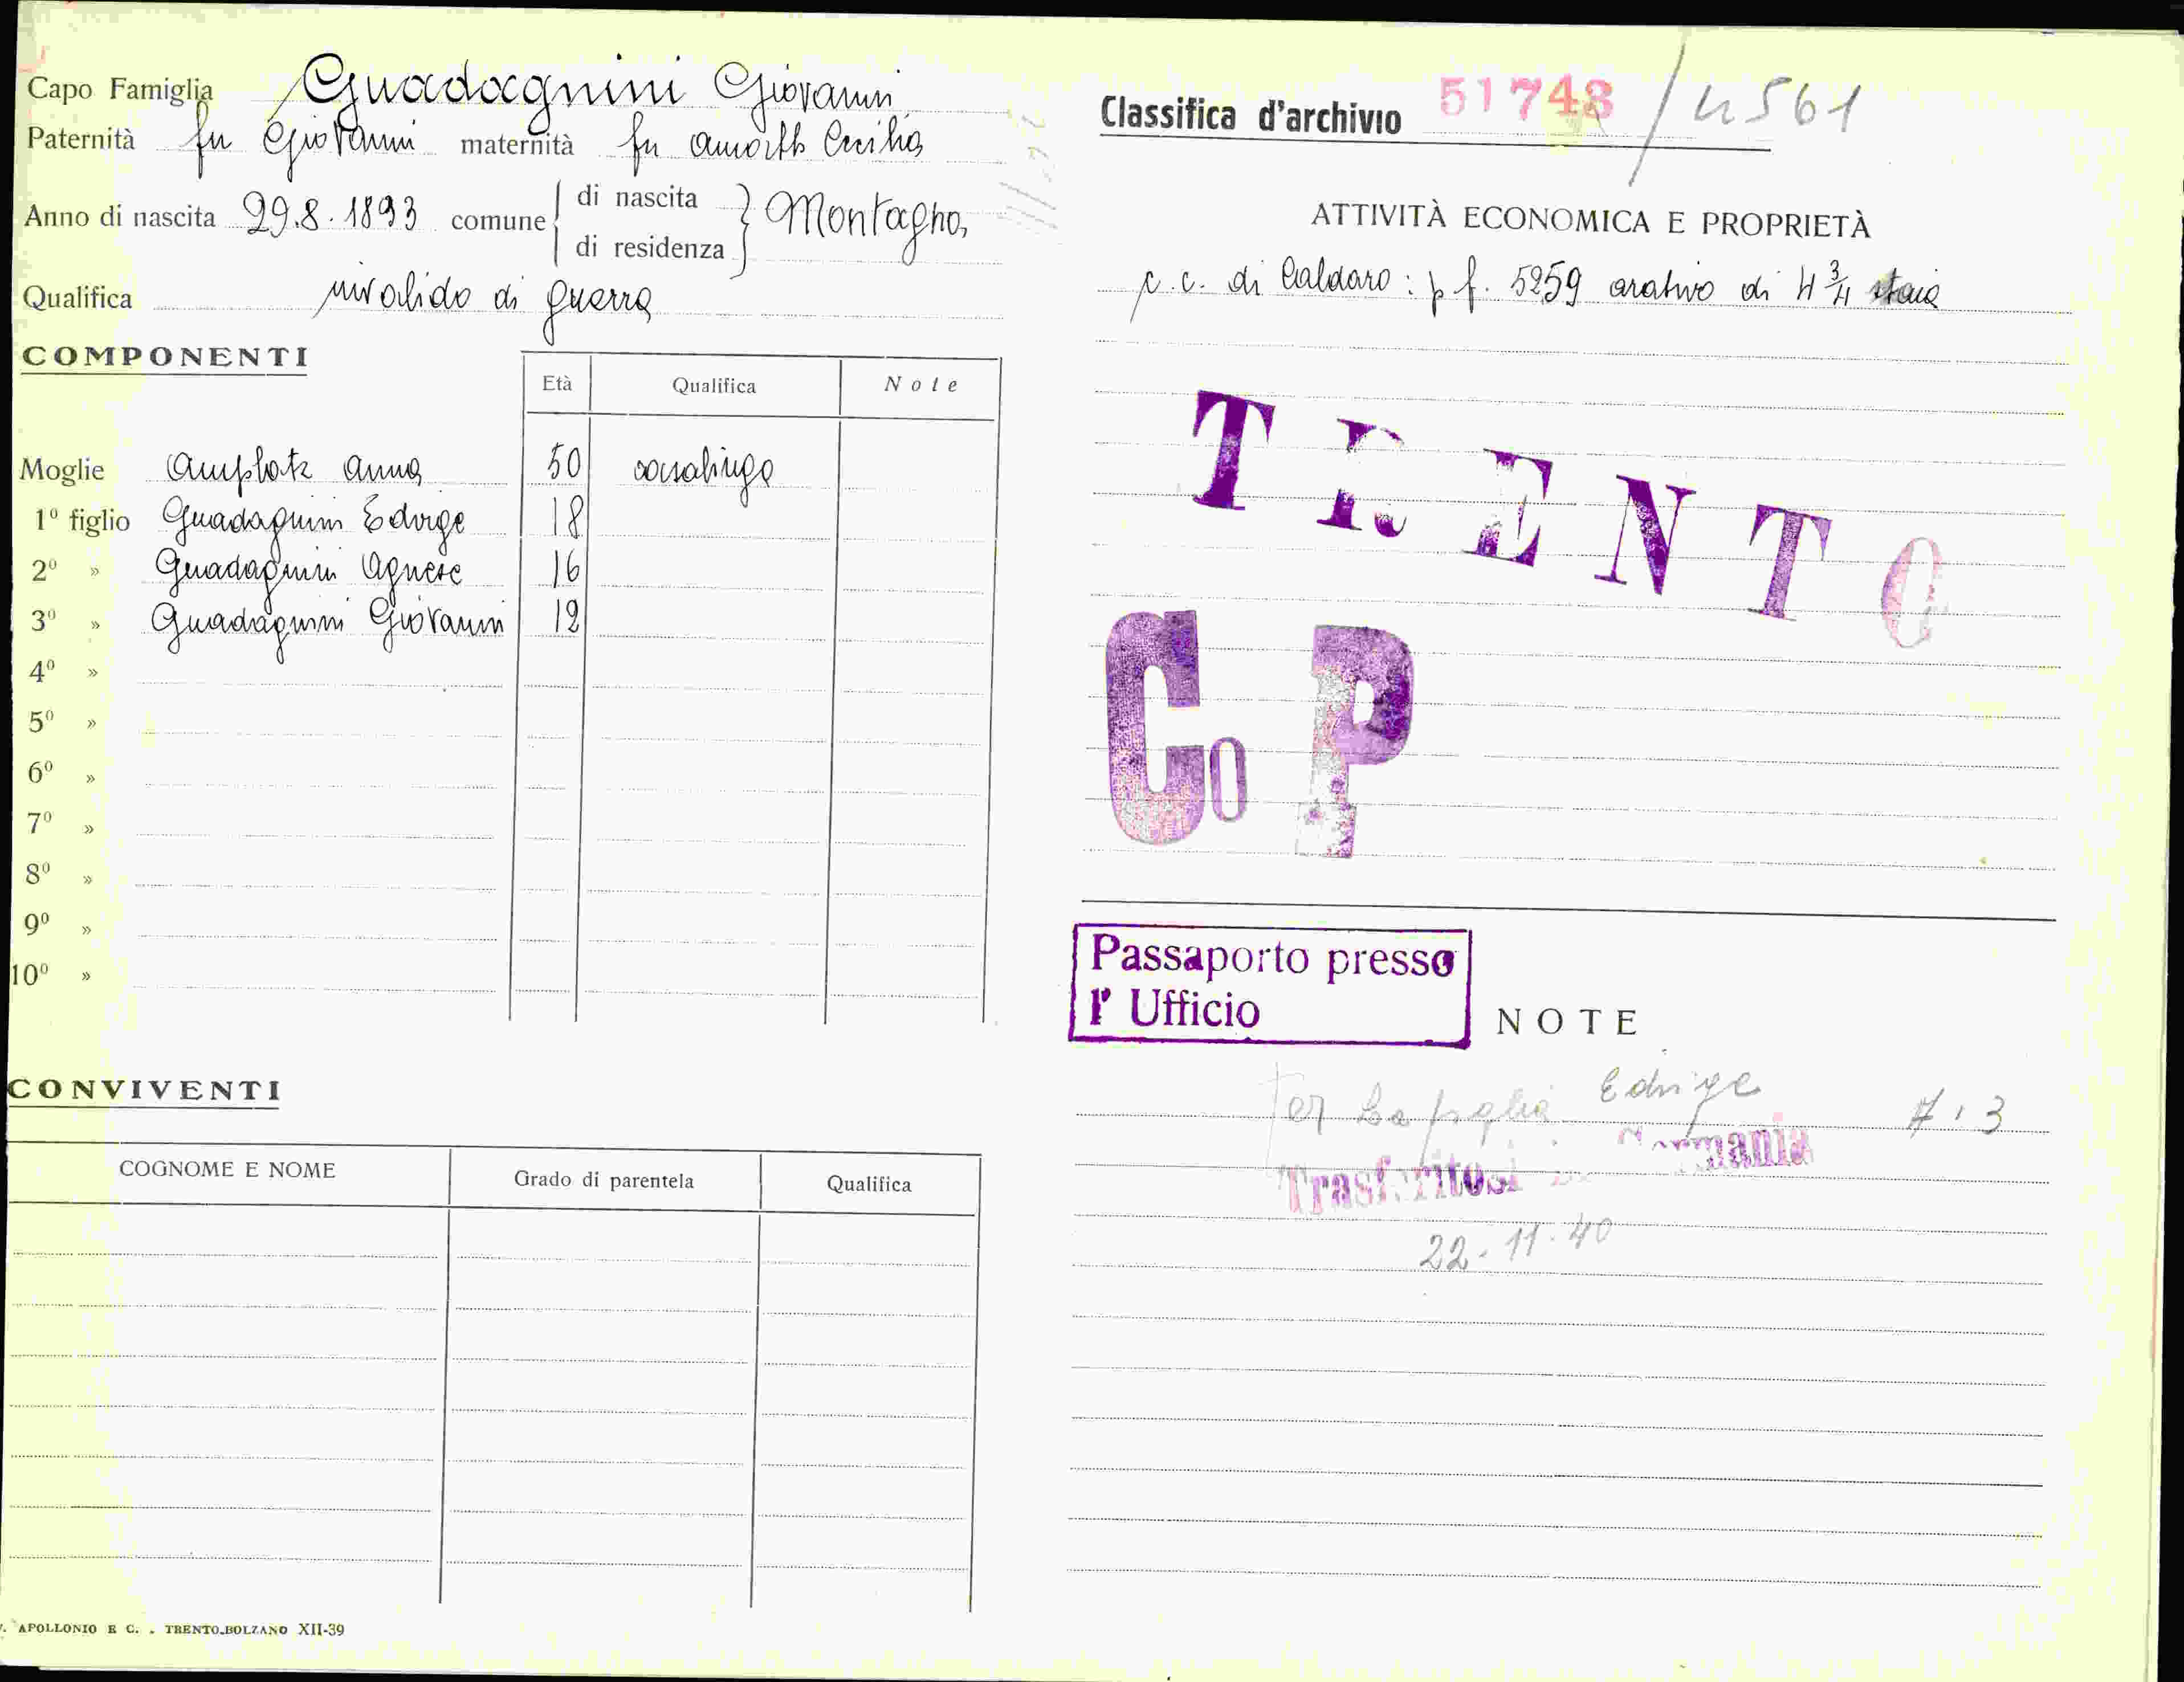 Capo Famiglia Guadagnini Giovanni
Paternità fu Giovanni maternità fu Amorth Cecilia
Anno di nascita 29.8.1893 comune di nascita di residenza Montagna,
Qualifica invalido di guerra
COMPONENTI
Età Qualifica Note
Moglie Amplatz Anna 50 casalinga
1º figlio Guadagnini Edvige 18
2º » Guadagnini Agnese 16
3º » Guadagnini Giovanni 12
4º »
5º »
6º »
7º »
8º »
9º »
10º »
CONVIVENTI
COGNOME E NOME Grado di parentela Qualifica
APOLLONIO E C. . TRENTO-BOLZANO XII-39
Classifica d'archivio 51748 / 4561
ATTIVITÀ ECONOMICA E PROPRIETÀ
c.c. di Caldaro: p f. 5259 arativo di 4 3/4 staia
TRENTO
Co P
Passaporto presso
l' Ufficio
NOTE
Per la figlia Edvige
Trasferitosi Germania
22.11.40